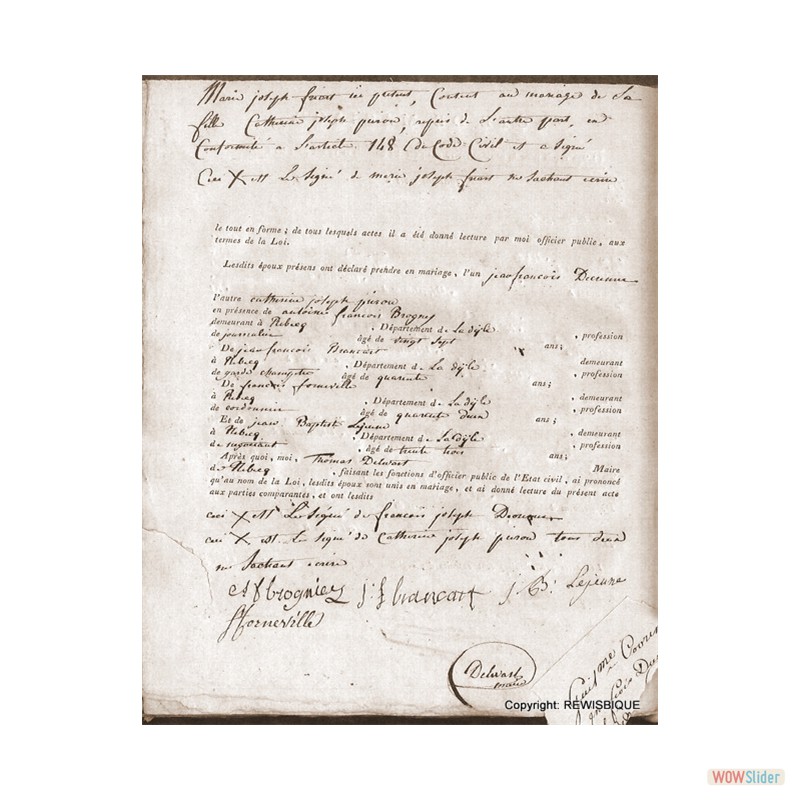 Marie joseph friart ici présent, Consent au mariage de Sa
fille Catherine joseph piérou, repris de l'autre part, en
Conformité a l'article 148 du Code Civil et a Signé
Ceci X est Le Signé de marie joseph friart ne Sachant écrire
le tout en forme ; de tous lesquels actes il a été donné lecture par moi officier public, aux
termes de la Loi.
Lesdits époux présens ont déclaré prendre en mariage, l'un jean françois
l'autre catherine joseph piérou
en présence de antoine françois Brogniez
demeurant à Rebecq , Département de La dijle , profession
de journalier âgé de vingt sept ans ;
De jean françois Brancart demeurant
à Rebecq , Département de La dijle , profession
de garde champêtre âgé de quarante ans ;
De françois forneville , demeurant
à Rebecq , Département de La dijle , profession
de cordonnier âgé de quarente deux ans ;
Et de jean Baptist Lejeune , demeurant
à Rebecq , Département de La dijle , profession
de negociant , âgé de trente trois ans ;
Après quoi, moi, Thomas Delwart Maire
de Rebecq , faisant les fonctions d'officier public de l'Etat civil, ai prononcé
qu'au nom de la Loi, lesdits époux sont unis en mariage, et ai donné lecture du présent acte
aux parties comparantes, et ont lesdits
ceci X est Le Signé de françois joseph
ceci X est Le Signé de Catherine joseph piérou tous deux
ne Sachant écrire
Brogniez j : f brancart j B. Lejeune
forneville
Delwart
maire
Copyright: REWISBIQUE
WOWSlider